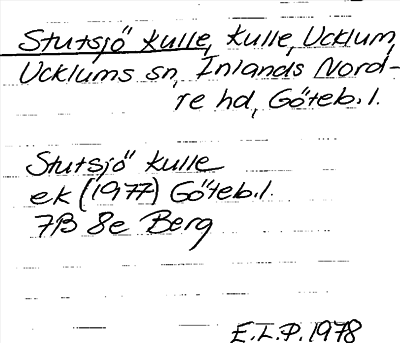 Stutsjö kulle, Kulle, Ucklum,
Ucklums sn, Inlands Nord-
re hd, Göteb. l.
Stutsjö kulle
ek (1977) Göteb. l.
7B 8e Berg
E.L.P. 1978